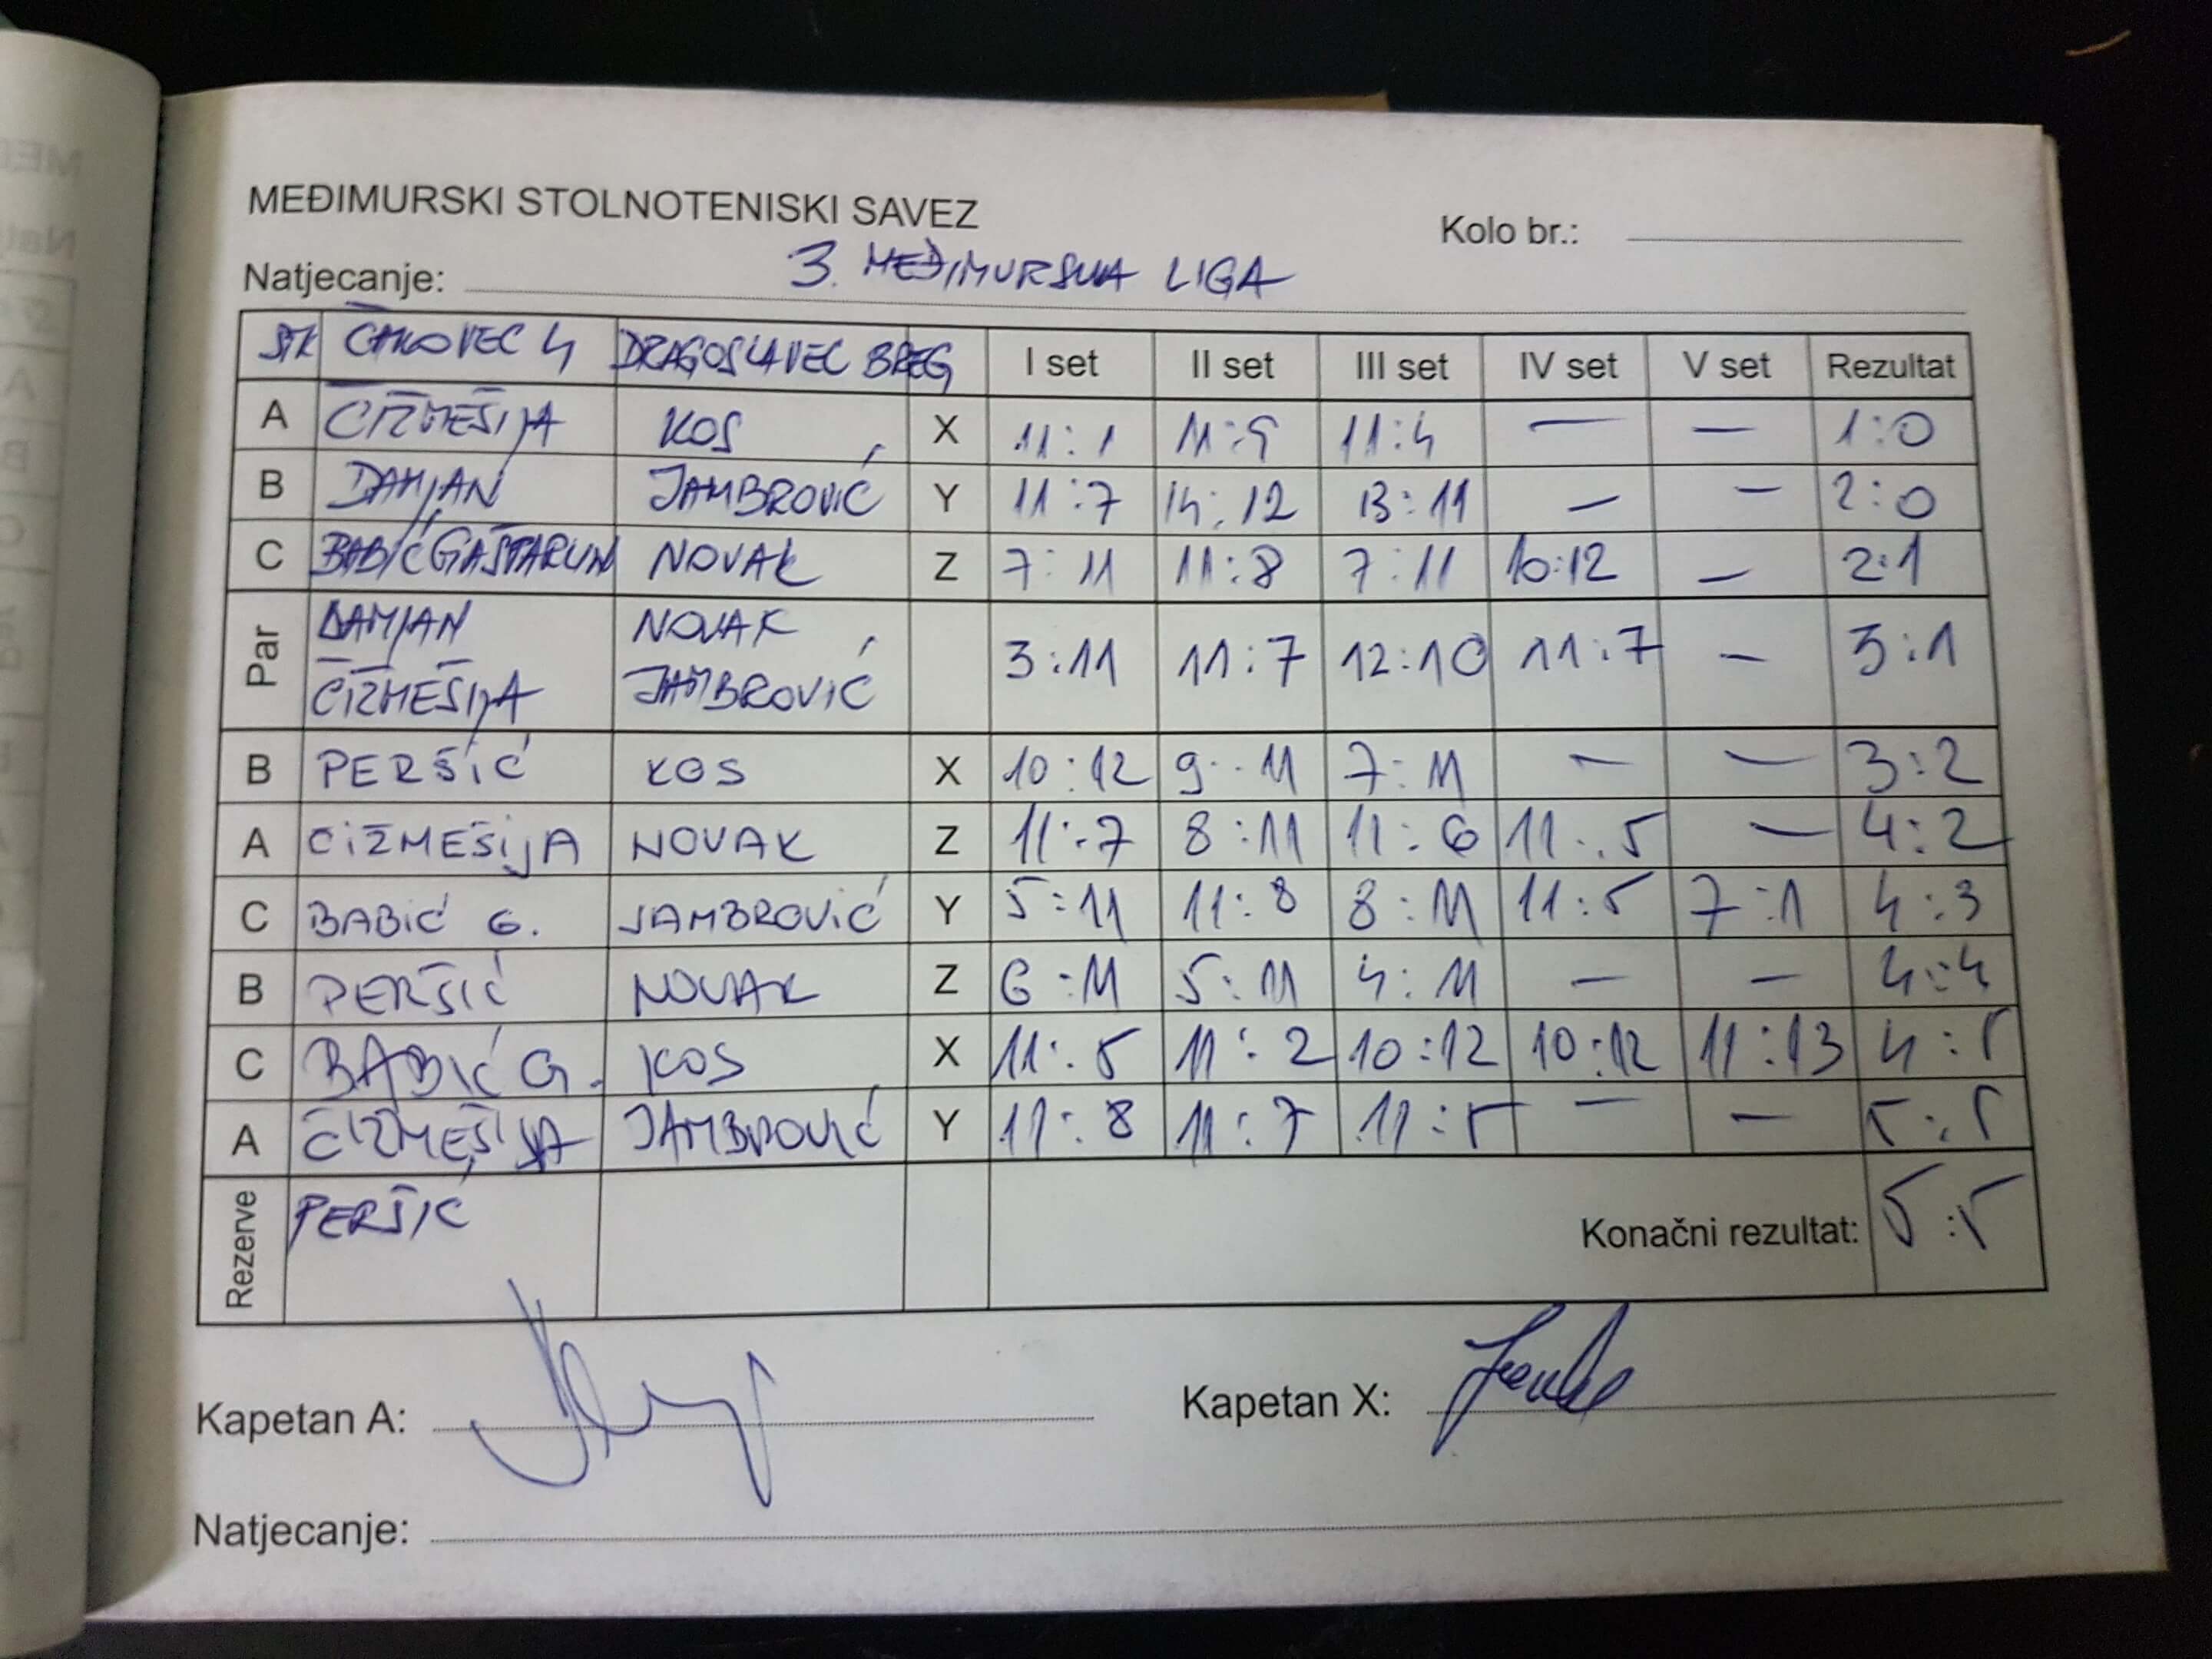 MEĐIMURSKI STOLNOTENISKI SAVEZ
Kolo br.:
Natjecanje: 3. MEĐIMURSKA LIGA
STK ČAKOVEC 4 DRAGOSLAVEC BREG I set II set III set IV set V set Rezultat
A ČIŽMEŠIJA KOS X 11:1 11:9 11:4 — — 1:0
B DAMJAN JAMBROVIĆ Y 11:7 14:12 13:11 — — 2:0
C BABIĆ GAŠTARUN NOVAK Z 7:11 11:8 7:11 10:12 — 2:1
Par DAMJAN NOVAK 3:11 11:7 12:10 11:7 — 3:1
ČIŽMEŠIJA JAMBROVIĆ
B PERŠIĆ KOS X 10:12 9:11 7:11 — — 3:2
A CIŽMEŠIJA NOVAK Z 11:7 8:11 11:6 11:5 — 4:2
C BABIĆ G. JAMBROVIĆ Y 5:11 11:8 8:11 11:5 7:11 4:3
B PERŠIĆ NOVAK Z 6:11 5:11 4:11 — — 4:4
C BABIĆ G. KOS X 11:5 11:2 10:12 10:12 11:13 4:5
A ČIŽMEŠIJA JAMBROVIĆ Y 11:8 11:7 11:5 — — 5:5
Rezerve PERŠIĆ Konačni rezultat: 5:5
Kapetan A: Kapetan X:
Natjecanje: